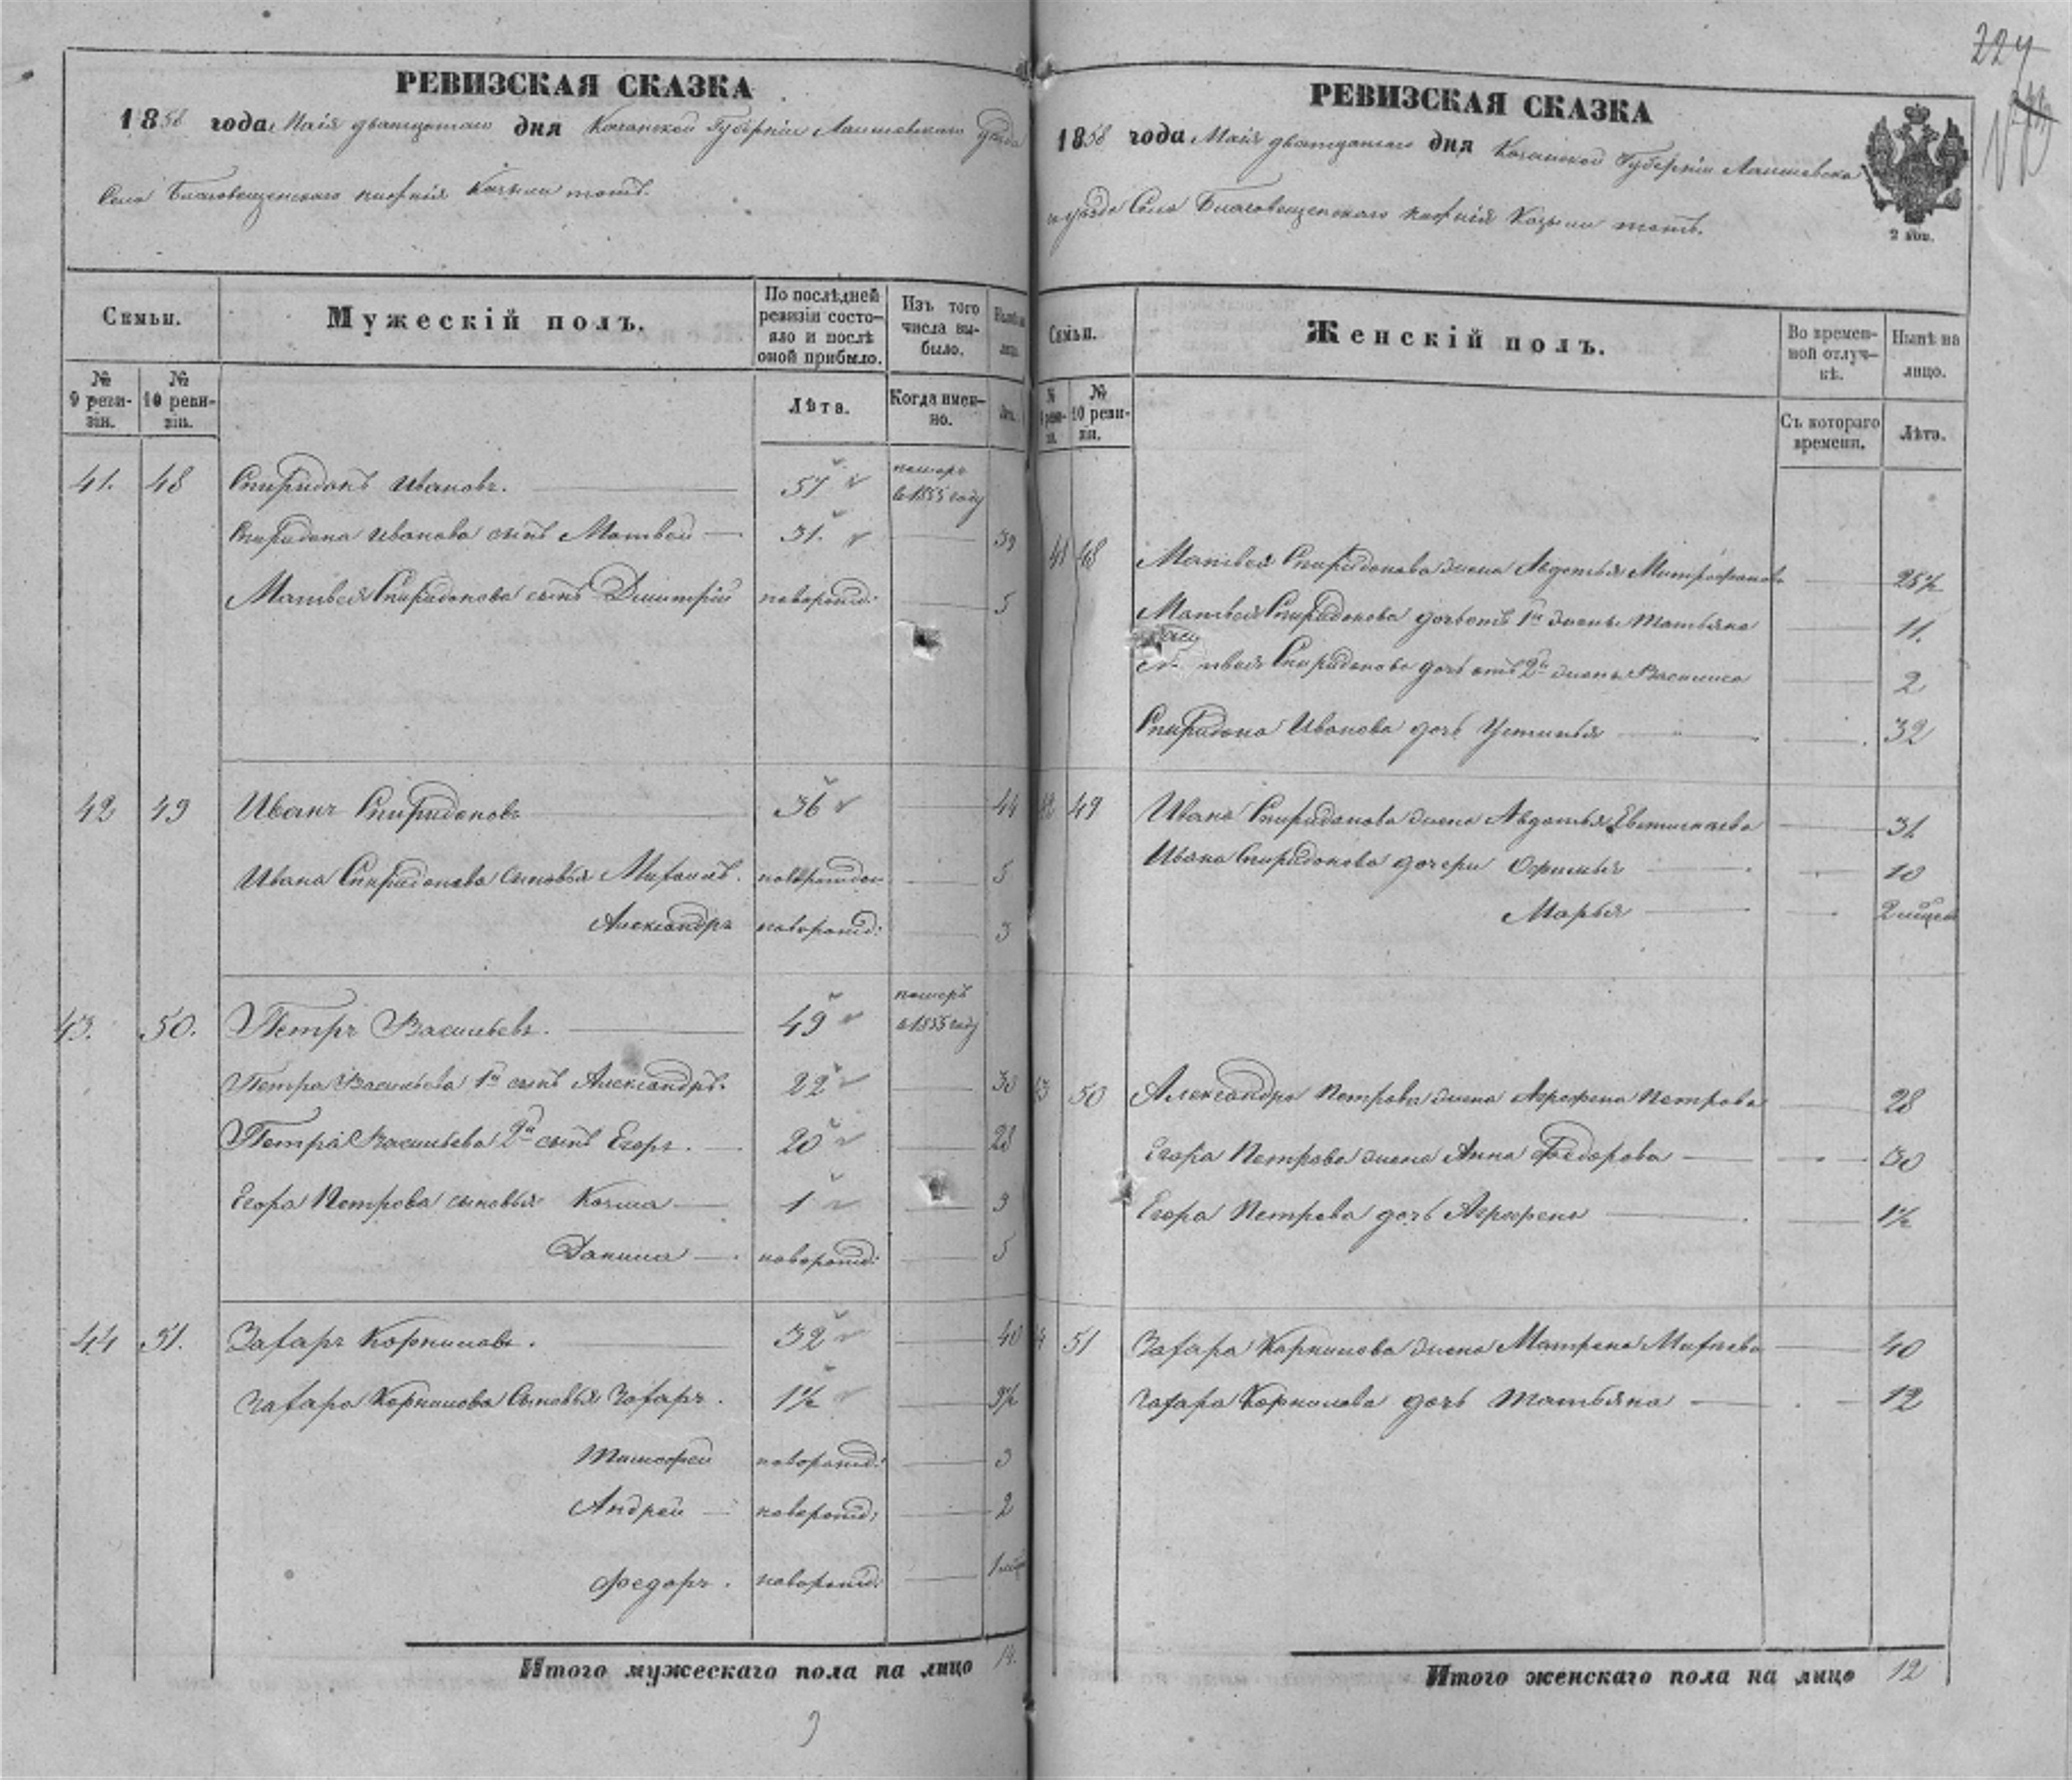 РЕВИЗСКАЯ СКАЗКА
1858 года Маія дватцатого дня Казанской Губерніи Лаишевского уезда
Села Благовещенского нижнія Козыли тотъ.
Семьи.
Мужескій полъ.
По послѣдней ревизіи состо-
яло и послѣ
оной прибыло.
Изъ того
числа вы-
было.
Нынѣ на
лицо.
№
9 реви-
зіи.
№
10 реви-
зіи.
Лѣта.
Когда имен-
но.
Лѣта.
41. 48 Спиридонъ Ивановъ. 57 померъ в 1855 году
Спиридона Иванова сынъ Матвей 31. 39
Матвея Спиридонова сынъ Дмитрій новорожд: 5
42 49 Иванъ Спиридоновъ 36 44
Ивана Спиридонова сыновья Михаилъ. новорожден 5
Александръ новорожд: 3
43. 50. Петръ Васильевъ. 49 померъ в 1855 году
Петра Васильева 1й сынъ Александръ. 22 30
Петра Васильева 2й сынъ Егоръ. 20 28
Егора Петрова сыновья Козма 1 9
Данила новорожд: 5
44 51. Захаръ Корниловъ. 32 40
Захара Корнилова Сыновья Захаръ. 1½ 9½
Тимофей новорожд: 3
Андрей новорожд: 2
Федоръ. новорожд: 1
Итого мужескаго пола на лицо 14.
9
224
РЕВИЗСКАЯ СКАЗКА
1858 года Маія дватцатого дня Казанской Губерніи Лаишевско
го уезда Села Благовещенского нижнія Козыли тотъ.
2 коп.
Семьи.
Женскій полъ.
Во времен-
ной отлуч-
кѣ.
Нынѣ на
лицо.
№
9 реви-
зіи.
№
10 реви-
зіи.
Съ котораго
времени.
Лѣта.
41 48 Матвея Спиридонова жена Авдотья Митрофанова 28½
Матвея Спиридонова дочь отъ 1й жены Татьяна 11.
Матвея Спиридонова дочь отъ 2й жены Василиса 2
Спиридона Иванова дочь Устинья 32
42 49 Ивана Спиридонова жена Авдотья 31
Ивана Спиридонова дочери Офимья 10
Марья 2
43 50 Александра Петрова жена Агрофена Петрова 28
Егора Петрова жена Анна Федорова 30
Егора Петрова дочь Агрофена 1½
44 51 Захара Корнилова жена Матрена 40
Захара Корнилова дочь Татьяна 12
Итого женскаго пола на лицо 12